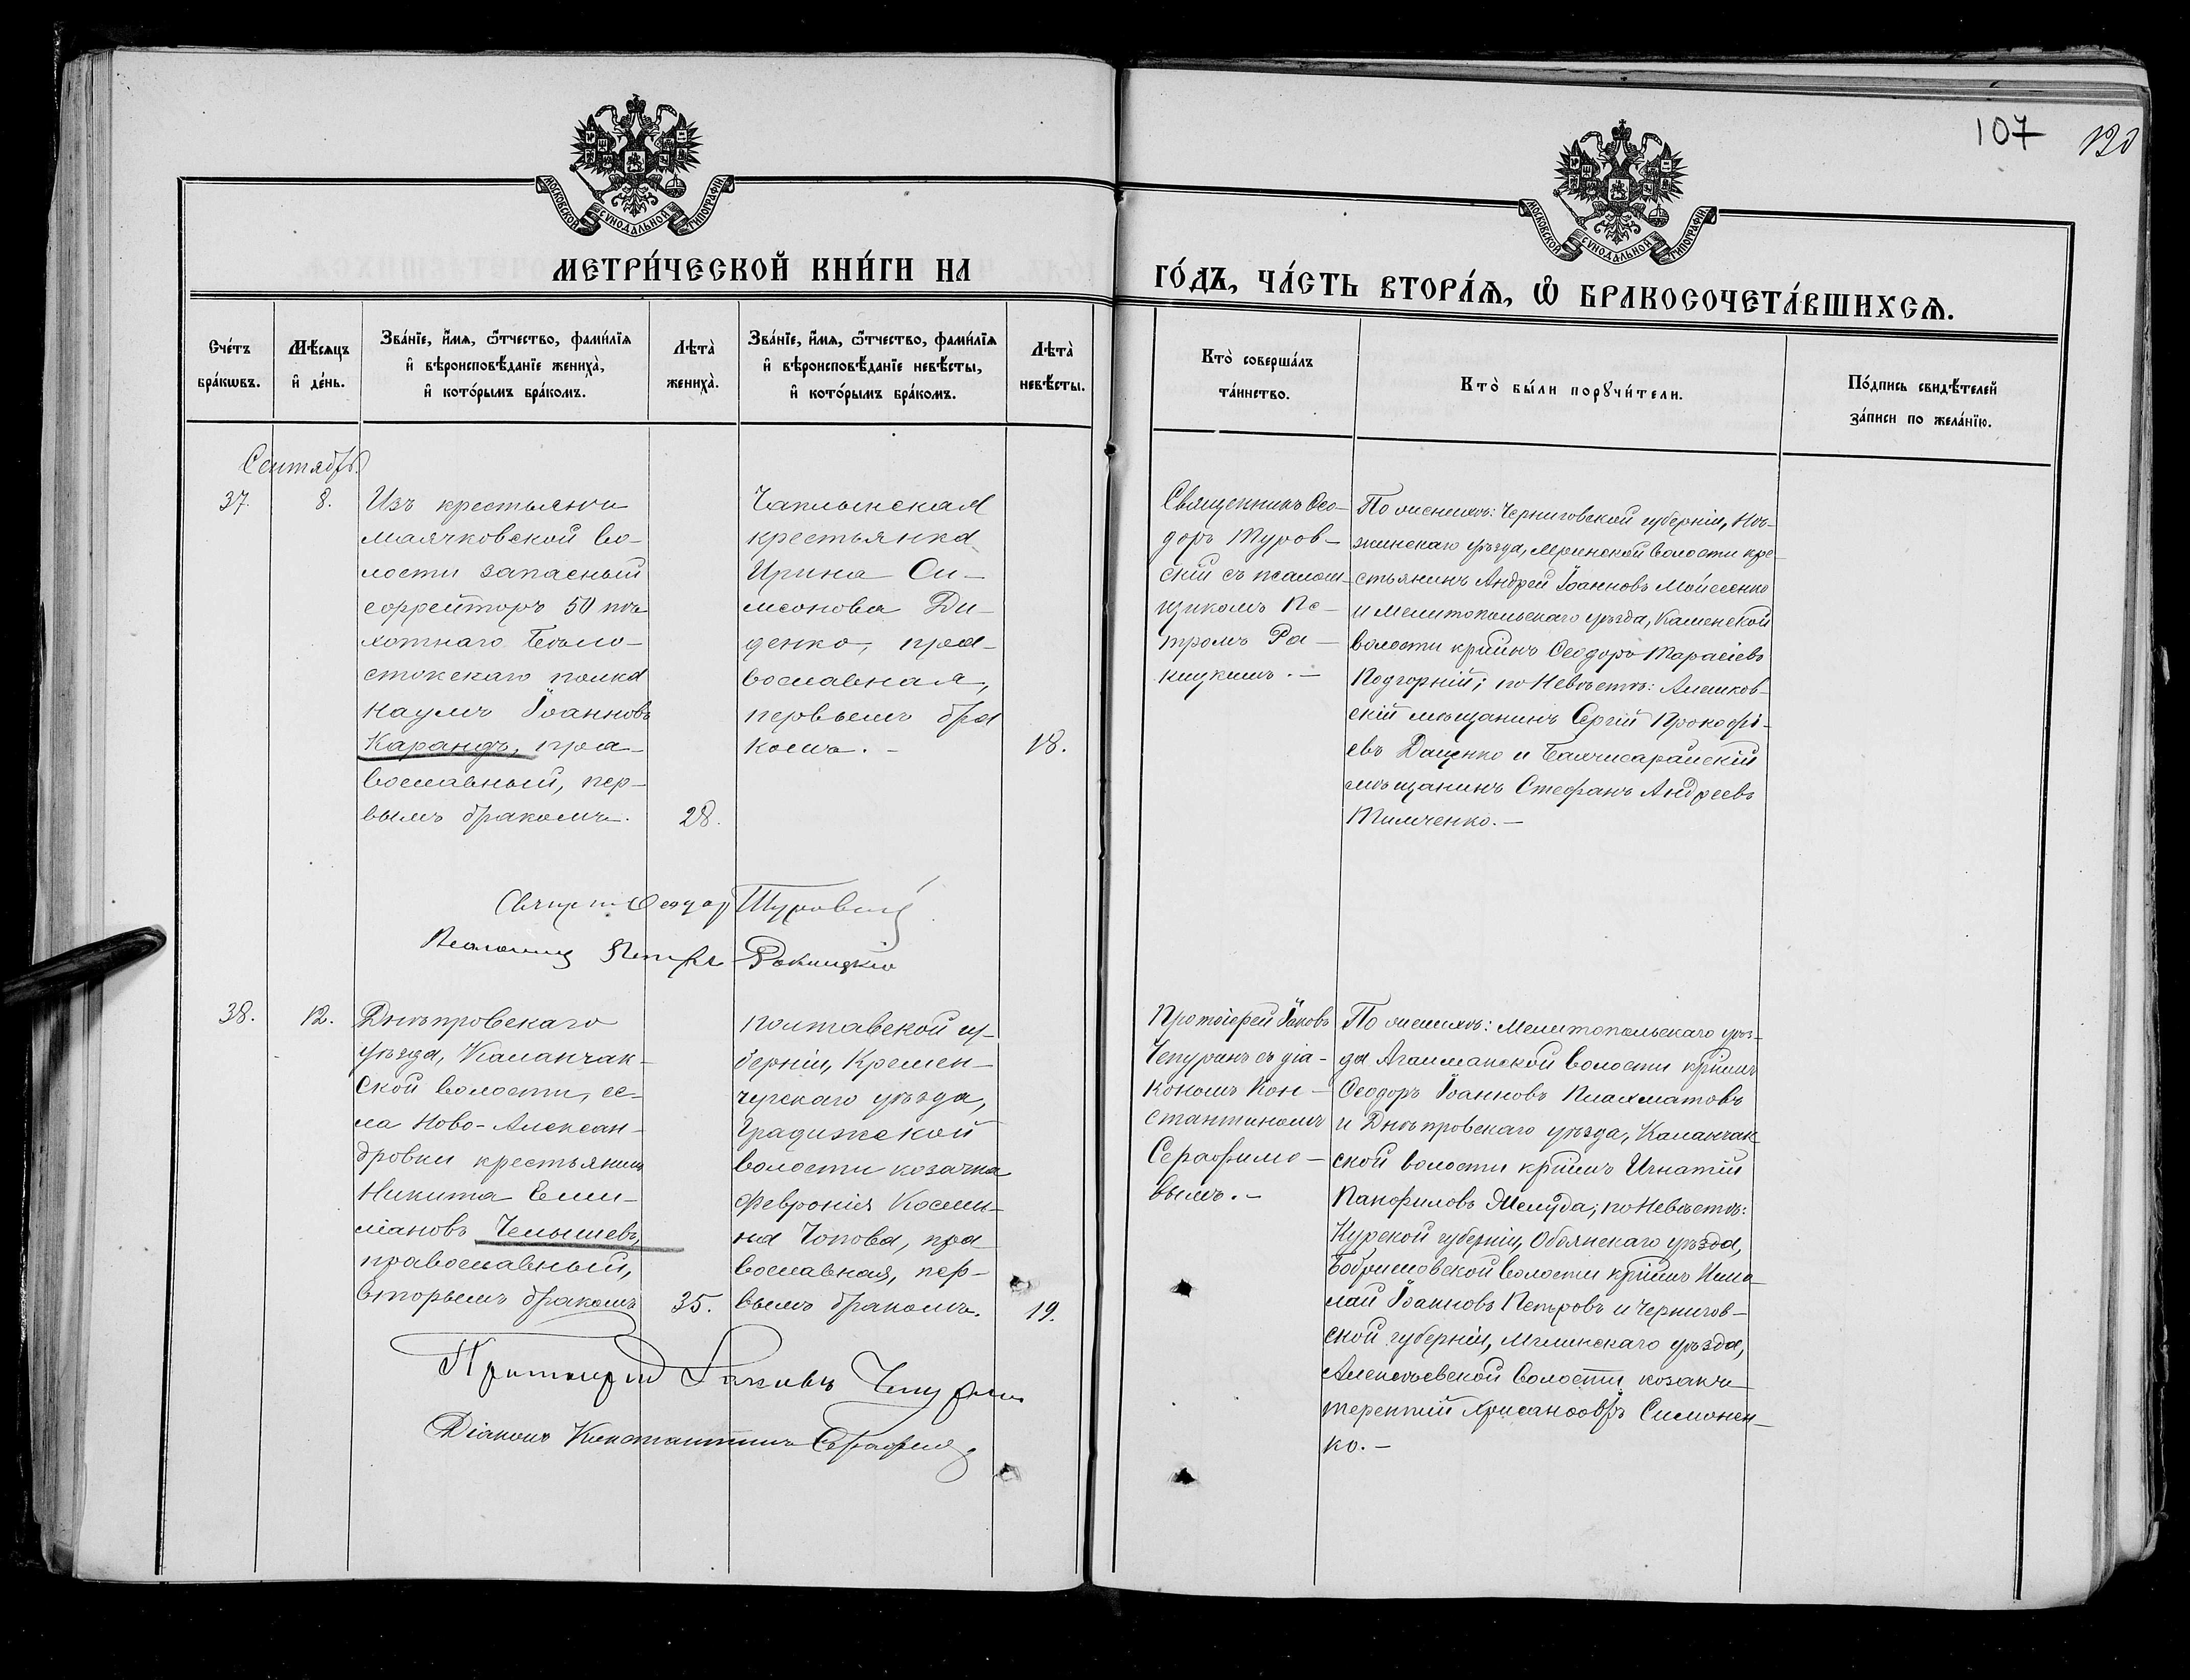 107 120
МОСКОВСКОЙ СѴНОДАЛЬНОЙ ТИПОГРАФІИ
МОСКОВСКОЙ СѴНОДАЛЬНОЙ ТИПОГРАФІИ
МЕТРИ́ЧЕСКОЙ КНИ́ГИ НА
ГО́ДЪ, ЧА́СТЬ ВТОРА́Ѧ, Ѽ БРАКОСОЧЕТА́ВШИХСѦ.
Сче́тъ
бра́кѡвъ.
Мѣ́сяцъ
и҆ де́нь.
Зва́нїе, и҆́мѧ, ѻ҆́тчество, фами́лїѧ
и҆ вѣроисповѣ́данїе жениха̀,
и҆ кото́рымъ бра́комъ.
Лѣта̀
жениха̀.
Зва́нїе, и҆́мѧ, ѻ҆́тчество, фами́лїѧ
и҆ вѣроисповѣ́данїе невѣ́сты,
и҆ кото́рымъ бра́комъ.
Лѣта̀
невѣ́сты.
Кто̀ соверша́лъ
та́инство.
Кто̀ бы́ли порꙋчи́тели.
По́дпись свидѣ́телей
за́писи по жела́нїю.
Сентябрь.
37.
8.
Изъ крестьянъ
Маячковской во-
лости запасный
ефрейторъ 50 пѣ-
хотнаго Бѣло-
стокскаго полка
Наумъ Іоанновъ
Карандъ, пра-
вославный, пер-
вымъ бракомъ.
28.
Чаплынская
крестьянка
Ирина Си-
меонова Ди-
денко, пра-
вославная,
первымъ бра
комъ. –
18.
Священникъ Ѳео-
доръ Туров-
скій съ псалом-
щикомъ Пе-
тромъ Ра-
кицкимъ. –
По женихѣ: Черниговской губерніи, Нѣ-
жинскаго уѣзда, Мринской волости кре-
стьянинъ Андрей Іоанновъ Мойсеенко
и Мелитопольскаго уѣзда, Каменской
волости кр–инъ Ѳеодоръ Тарасіевъ
Подгорній; по Невѣстѣ: Алешков-
скій мѣщанинъ Сергій Прокофі-
евъ Даценко и Бахчисарайскій
мѣщанинъ Стефанъ Андреевъ
Тимченко. –
Священ Ѳеодор Туровский
Псаломщ Петръ Ракицкій
38.
12.
Днѣпровскаго
уѣзда, Каланчак-
ской волости, се-
ла Ново-Алексан-
дровки крестьянинъ
Никита Еми-
ліановъ Челышевъ,
православный,
вторымъ бракомъ
35.
Полтавской гу-
берніи, Кремен-
чугскаго уѣзда,
Градижской
волости козачка
Февронія Косми-
на Чопова, пра
вославная, пер-
вымъ бракомъ.
19.
Протоіерей Іаковъ
Чепуринъ съ діа-
кономъ Кон-
стантиномъ
Серафимо-
вымъ. –
По женихѣ: Мелитопольскаго уѣз-
да Агайманской волости кр–инъ
Ѳеодоръ Іоанновъ Плахматовъ
и Днѣпровскаго уѣзда, Каланчак
ской волости кр–инъ Игнатій
Панфиловъ Желуда; по Невѣстѣ:
Курской губерніи, Обоянскаго уѣзда,
Бобрышовской волости кр–инъ Нико-
лай Іоанновъ Петровъ и Чернигов-
ской губерніи, Мглинскаго уѣзда,
Алексѣевской волости козакъ
Терентий Хрисанѳовъ Симонен-
ко. –
Протоиерей Іаковъ Чепурин
Діаконъ Константинъ Серафимов